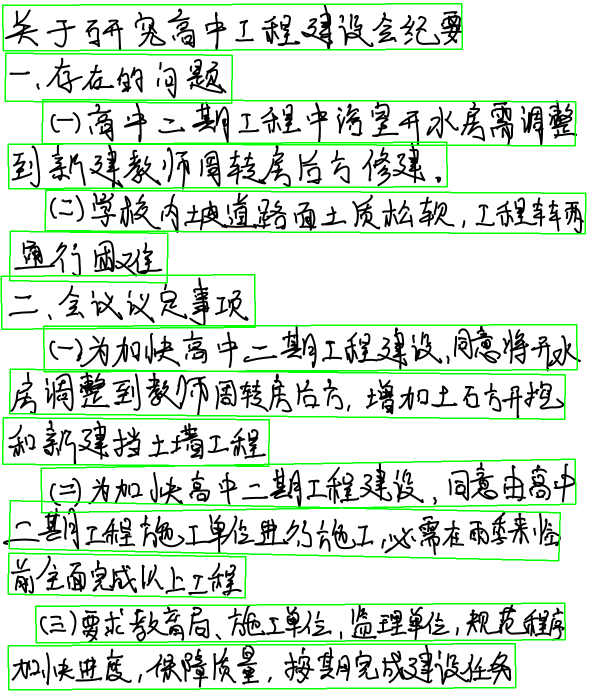 关于研究高中工程建设会纪要
一、存在的问题
(一)高中二期工程中浴室开水房需调整
到新建教师周转房后方修建。
(二)学校内土坡道路面土质松软,工程车辆
通行困难
二、会议议定事项
(一)为加快高中二期工程建设,同意将开水
房调整到教师周转房后方,增加土石方开挖
和新建挡土墙工程
(二)为加快高中二期工程建设,同意由高中
二期工程施工单位进行施工,必需在雨季来临
前全面完成以上工程
(三)要求教育局、施工单位,监理单位,规范程序
加快进度,保障质量,按期完成建设任务